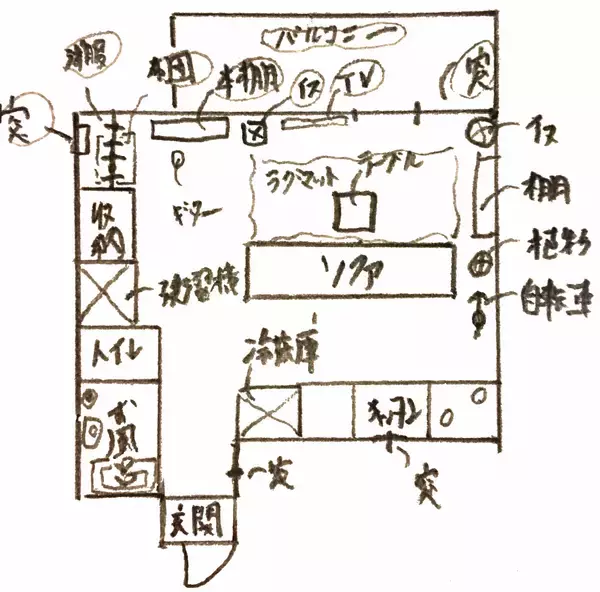 バルコニー
洋服
布団
本棚
イス
TV
窓
窓
イス
ラグマット
テーブル
棚
収納
ギター
ソファ
植物
自転車
トイレ
冷蔵庫
お風呂
キッチン
窓
窓
玄関